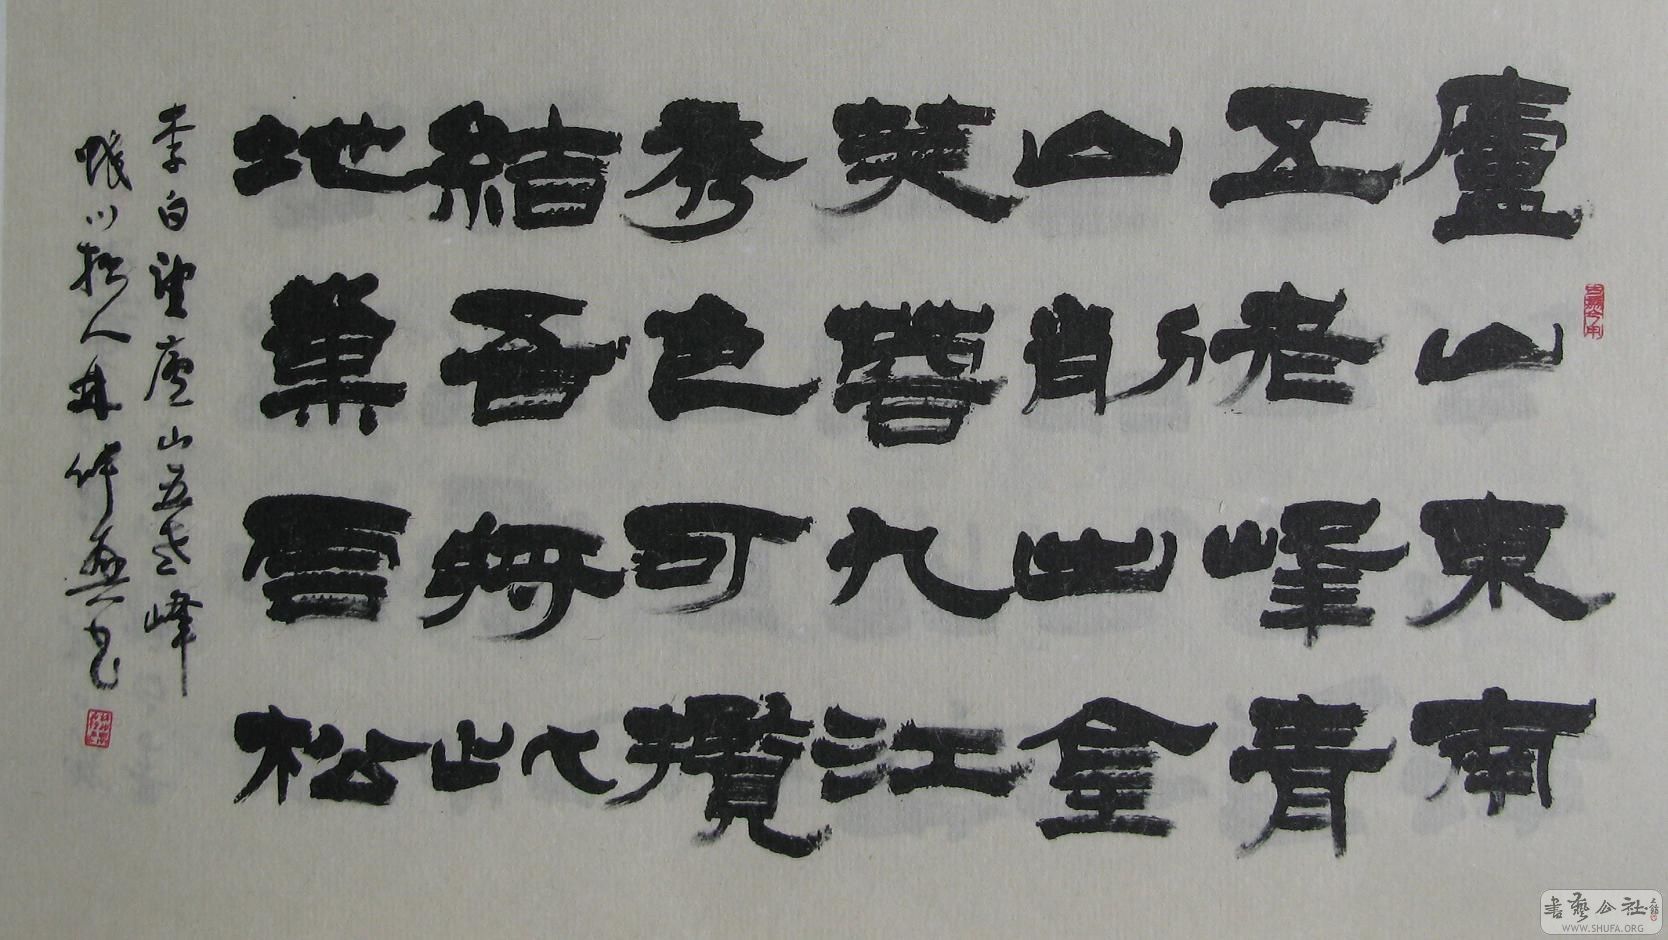 廬山東南
五老峰青
山削出金
芙蓉九江
秀色可攬
結吾將此
地巢雲松
李白望廬山五老峰
川拙人林仲興书
書藝公社
WWW.SHUFA.ORG